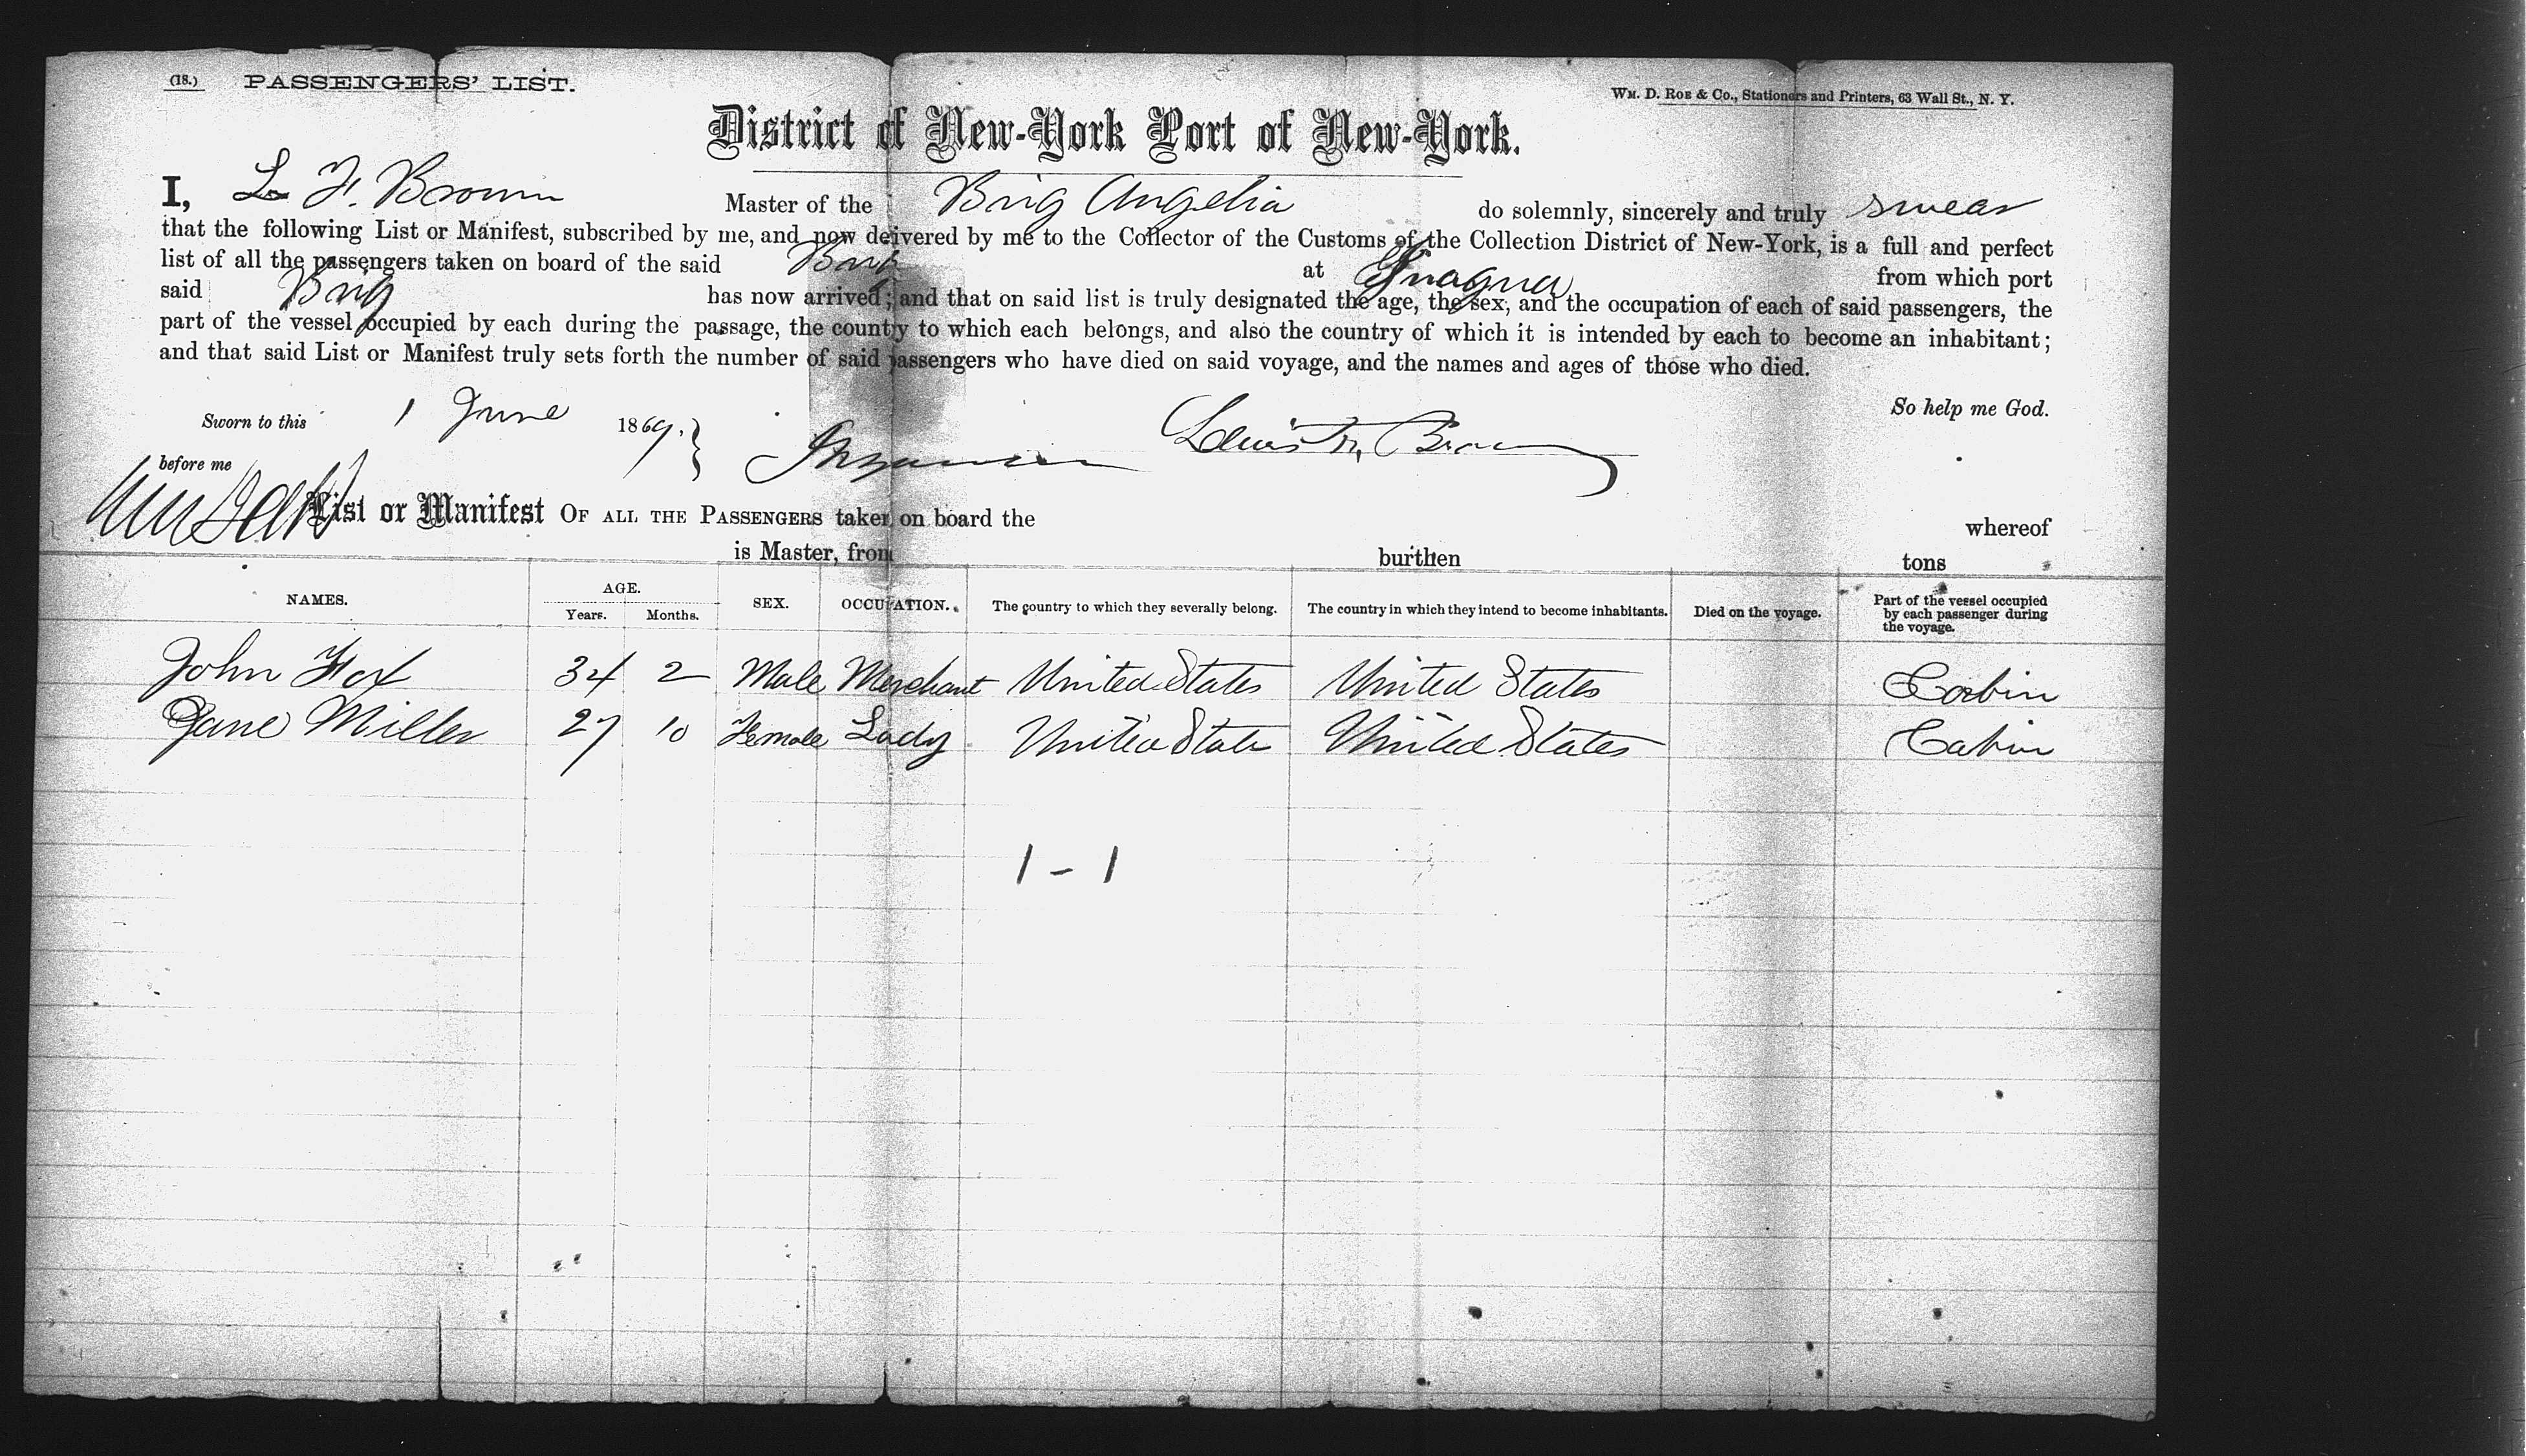 (18.) PASSENGERS' LIST.
WM. D. ROE & CO., Stationers and Printers, 63 Wall St., N. Y.
District of New-York Port of New-York.
I, L. F. Brown Master of the Brig Angelia do solemnly, sincerely and truly swear
that the following List or Manifest, subscribed by me, and now delivered by me to the Collector of the Customs of the Collection District of New-York, is a full and perfect
list of all the passengers taken on board of the said Brig at Inagua from which port
said Brig has now arrived; and that on said list is truly designated the age, the sex, and the occupation of each of said passengers, the
part of the vessel occupied by each during the passage, the country to which each belongs, and also the country of which it is intended by each to become an inhabitant;
and that said List or Manifest truly sets forth the number of said passengers who have died on said voyage, and the names and ages of those who died.
So help me God.
Sworn to this 1 June 1869.
Brown
before me
List or Manifest OF ALL THE PASSENGERS taken on board the whereof
is Master, from burthen tons
NAMES. AGE. Years. Months. SEX. OCCUPATION. The country to which they severally belong. The country in which they intend to become inhabitants. Died on the voyage. Part of the vessel occupied by each passenger during the voyage.
John Fox 34 2 Male Merchant United States United States Cabin
Jane Miller 27 10 Female Lady United State United States Cabin
1 - 1